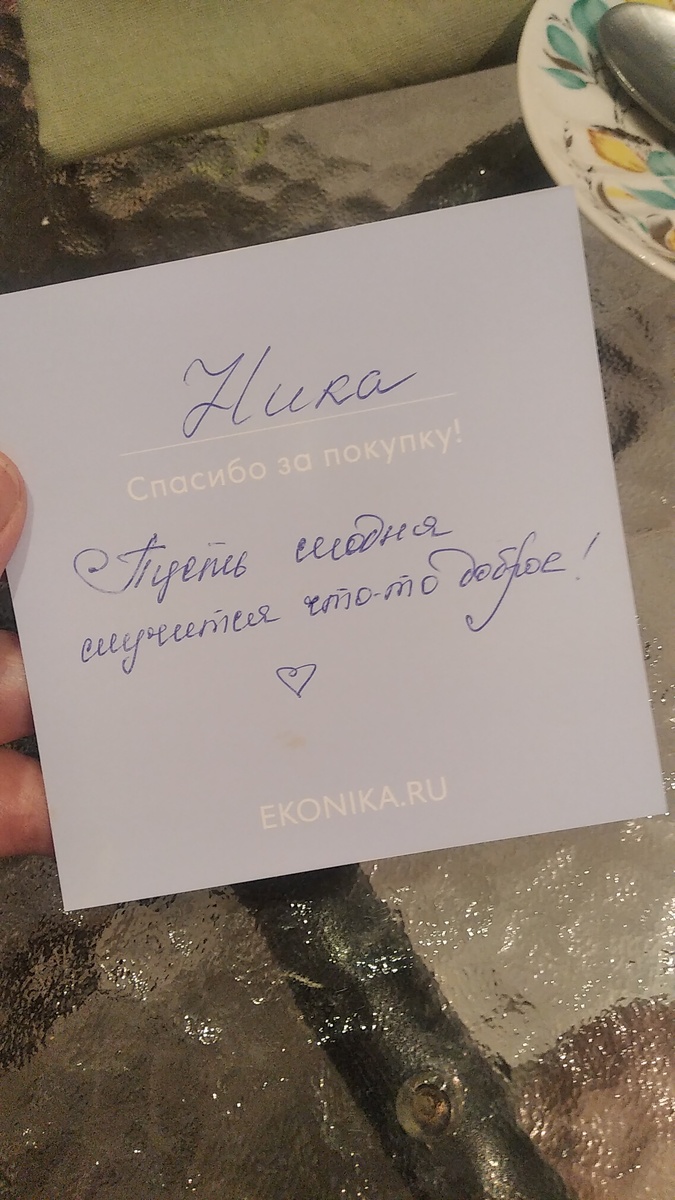 Ника
Спасибо за покупку!
Пусть сегодня
случится что-то доброе!
EKONIKA.RU